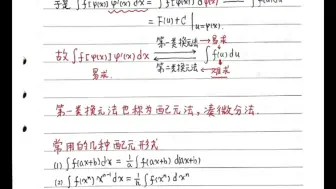 于是 ∫f[φ(x)]φ'(x)dx = ∫f[φ(x)]dφ(x) ∫f(u)du
= F(u)+C |u=φ(x)
第一类换元法 → 易求
故 ∫f[φ(x)]φ'(x)dx ∫f(u)du
易求 第二类换元法 难求
第一类换元法也称为配元法，凑微分法.
常用的几种配元形式
(1) ∫f(ax+b)dx = 1/a ∫f(ax+b) d(ax+b)
(2) ∫f(xⁿ)xⁿ⁻¹dx = 1/n ∫f(xⁿ)dxⁿ